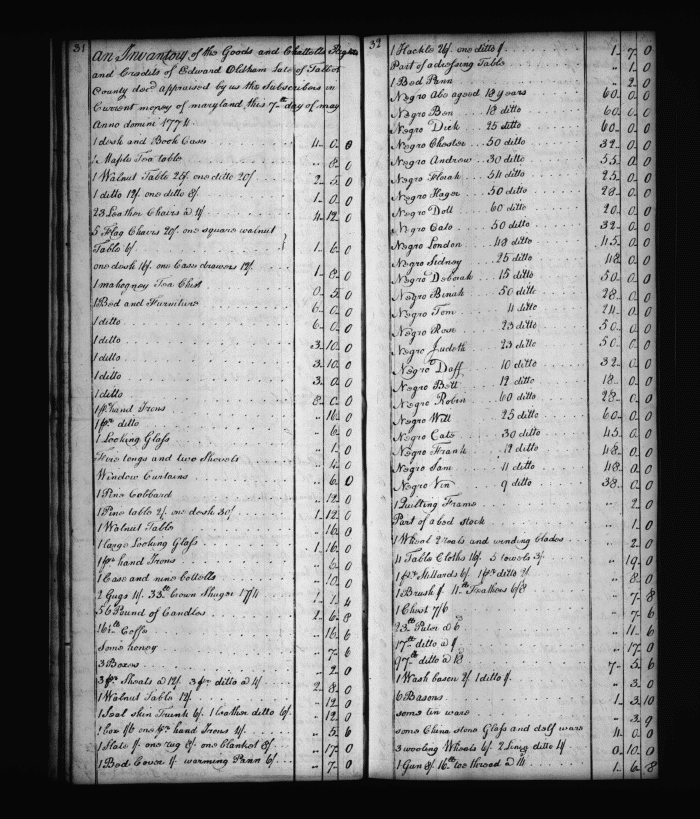 31
An Inventory of the Goods and Chattells Rights
and Credits of Edward Oldham Late of Talbot
County dec.d appraised by us the Subscribers in
Current money of maryland this 7th day of may
Anno domini 1774
1 desk and Book Case 4 0 0
1 Maple Tea table " 8 0
1 Walnut Table 25/ one ditto 20/ 2 5 0
1 ditto 12/ one ditto 8/ 1 0 0
23 Leather Chairs a 4/ 4 12 0
5 Flag Chairs 20/ one square walnut
Table 6/ 1 6 0
one desk 16/ one Case drawers 12/ 1 8 0
1 mahogney Tea Chest 0 5 0
1 Bed and Furniture 6 0 0
1 ditto 6 0 0
1 ditto 3 10 0
1 ditto 3 10 0
1 ditto 3 0 0
1 ditto 8 0 0
1 pr hand Irons " 16 0
1 pr ditto " 6 0
1 Looking Glass " 1 0
Fire tongs and two Shovels " 4 0
Window Curtains " 6 0
1 Pine Cobbard " 12 0
1 Pine table 2/ one desk 30/ 1 12 0
1 Walnut Table " 16 0
1 large Looking Glass 1 16 0
1 pr hand Irons " 5 0
1 Case and nine Bottells " 10 0
2 Gugs 4/ 33 lb brown Shuger 17/4 1 1 4
56 Pound of Candles 1 6 8
16½ lb Coffe " 16 6
some honey " 7 6
3 Boxes " 2 0
3 pr Sheats a 12/ 3 pr ditto a 4/ 2 8 0
1 Walnut Table 12/ " 12 0
1 Seal skin Trunk 6/ 1 leather ditto 6/ " 12 0
1 box 1/6 one pr hand Irons 4/ " 5 6
1 Slate 1/ one rug 8/ one blanket 8/ " 17 0
1 Bed Cover 1/ warming Pann 6/ " 7 0
32
1 Hackle 26/ one ditto 1/ 1 7 0
Part of a dressing Table " 1 0
1 Bed Pann " 2 0
Negro Abe aged 18 years 60 0 0
Negro Ben 18 ditto 60 0 0
Negro Dick 25 ditto 60 0 0
Negro Chester 50 ditto 32 0 0
Negro Andrew 30 ditto 55 0 0
Negro 54 ditto 25 0 0
Negro Hager 50 ditto 28 0 0
Negro Doll 60 ditto 20 0 0
Negro Cato 50 ditto 32 0 0
Negro London 48 ditto 45 0 0
Negro Sidney 25 ditto 48 0 0
Negro Deborah 15 ditto 50 0 0
Negro Binah 50 ditto 28 0 0
Negro Tom 4 ditto 24 0 0
Negro Rose 23 ditto 50 0 0
Negro Judeth 23 ditto 50 0 0
Negro Daff 10 ditto 32 0 0
Negro Bett 12 ditto 18 0 0
Negro Robin 60 ditto 28 0 0
Negro Will 25 ditto 60 0 0
Negro Cate 30 ditto 45 0 0
Negro Frank 12 ditto 48 0 0
Negro Sam 11 ditto 48 0 0
Negro Vin 9 ditto 38 0 0
1 Quilting Frame " 2 0
Part of a bed stock " 1 0
1 Wheal 2 reals and winding blades " 2 0
4 Table Cloths 16/ 5 towels 3/ " 19 0
1 pr Stillards 6/ 1 pr ditto 2/ " 8 0
1 Brush 1/ 11 lb Feathers 6/8 " 7 8
1 Chest 7/6 " 7 6
23 lb Puter a 6 " 11 6
17 lb ditto a 1/ " 17 0
97 lb ditto a 18 7 5 6
1 Wash basen 2/ 1 ditto 1/ " 3 0
6 Basons 1 3 10
some tin ware " 3 9
some China stone Glass and delf ware 4 0 0
3 wooling Wheels 6/ 2 Linig ditto 4/ 0 10 0
1 Gun 8/ 16 lb toe thread a 14 1 6 8